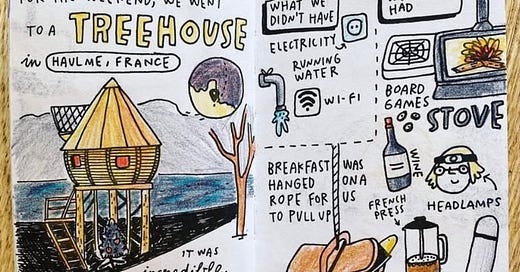 FOR THE WEEKEND, WE WENT
TO A TREEHOUSE
in HAULME, FRANCE
IT WAS
incredible.
WHAT WE
DIDN'T HAVE
ELECTRICITY
RUNNING
WATER
WI-FI
HAD
BOARD
GAMES
STOVE
WINE
HEADLAMPS
FRENCH
PRESS
BREAKFAST WAS
HANGED ON A
ROPE FOR US
TO PULL UP